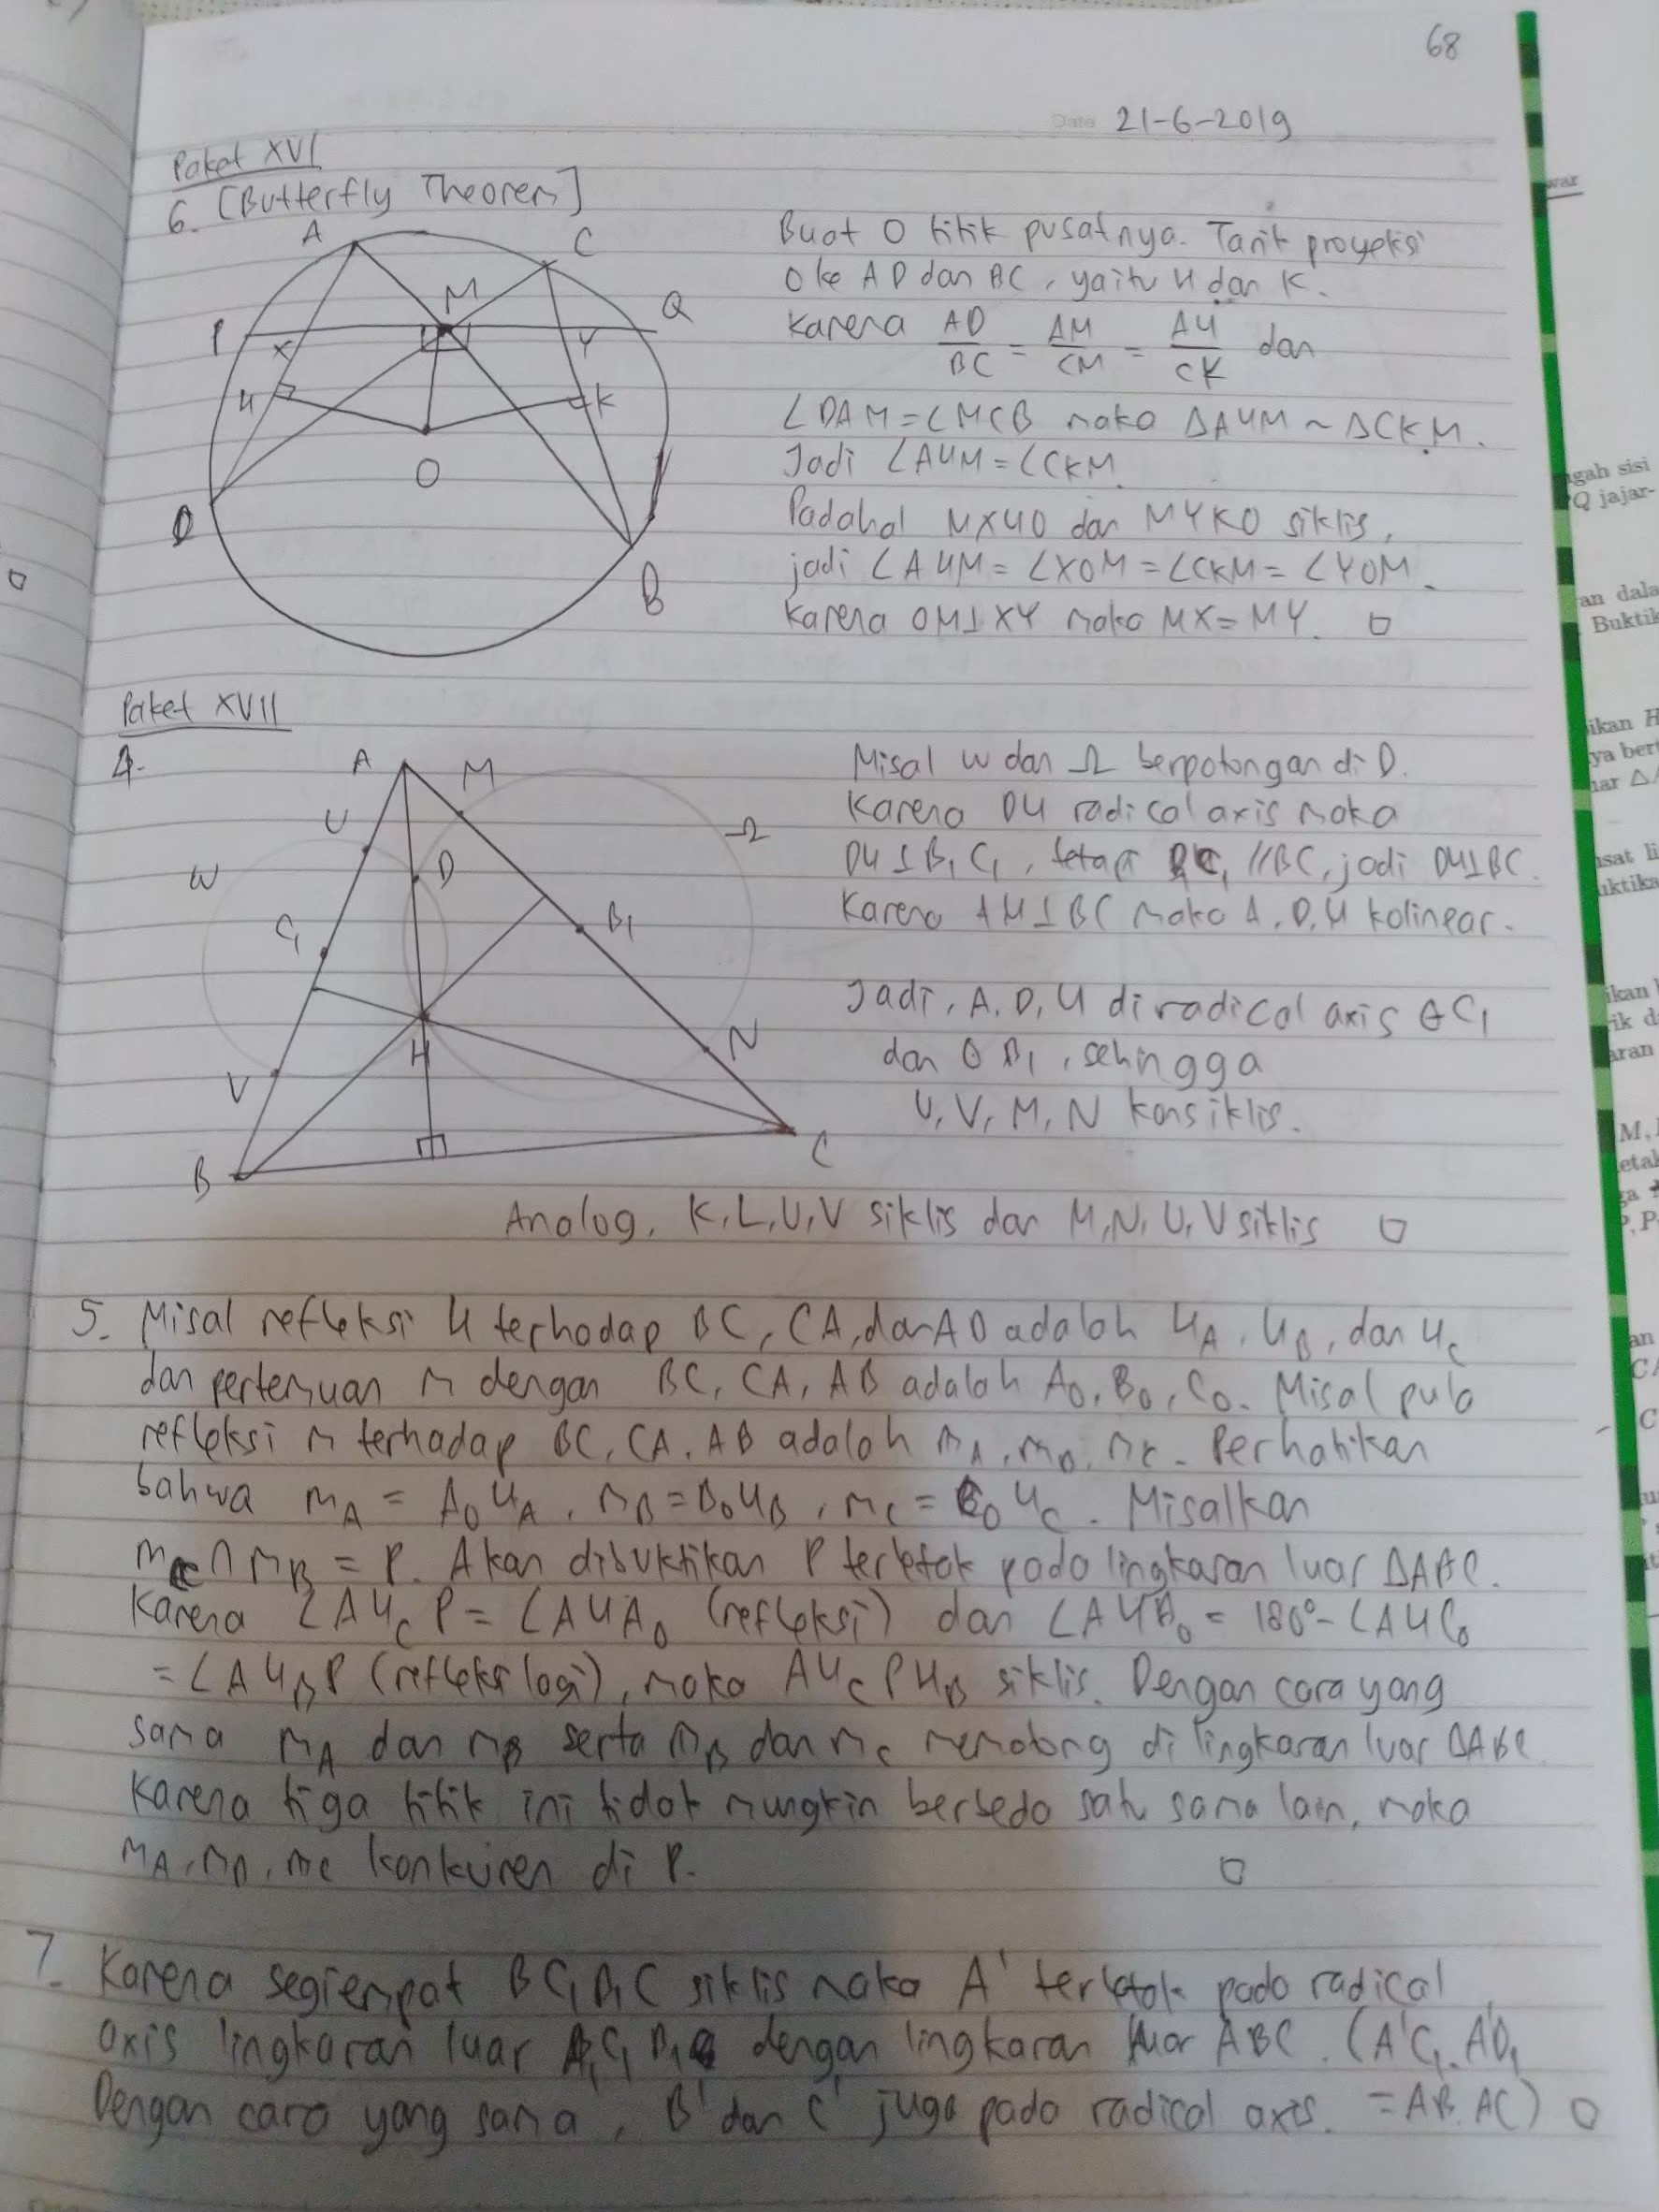 68
21-6-2019
Paket XVI
6. [Butterfly Theorem]
A
C
M
Q
P
X
Y
H
K
O
D
B
Buat O titik pusatnya. Tarik proyeksi
O ke AD dan BC, yaitu H dan K.
Karena AD/BC = AM/CM = AH/CK dan
∠DAM = ∠MCB maka ΔAHM ~ ΔCKM.
Jadi ∠AHM = ∠CKM.
Padahal MXHO dan MYKO siklis,
jadi ∠AHM = ∠XOM = ∠CKM = ∠YOM.
Karena OM⊥XY maka MX = MY. □
Paket XVII
4.
A
M
U
D
Ω
W
C₁
B₁
H
N
V
B
C
Misal ω dan Ω berpotongan di D.
Karena DH radical axis maka
DH⊥B₁C₁, tetapi B₁C₁ // BC, jadi DH⊥BC.
Karena AH⊥BC maka A, D, H kolinear.
Jadi, A, D, H di radical axis ΘC₁
dan Θ B₁, sehingga
U, V, M, N konsiklis.
Analog, K, L, U, V siklis dan M, N, U, V siklis □
5. Misal refleksi H terhadap BC, CA, dan AB adalah H_A, H_B, dan H_C
dan pertemuan m dengan BC, CA, AB adalah A₀, B₀, C₀. Misal pula
refleksi m terhadap BC, CA, AB adalah m_A, m_B, m_C. Perhatikan
bahwa m_A = A₀H_A, m_B = B₀H_B, m_C = C₀H_C. Misalkan
m_C ∩ m_B = P. Akan dibuktikan P terletak pada lingkaran luar ΔABC.
Karena ∠AH_CP = ∠AHA₀ (refleksi) dan ∠AHB₀ = 180° - ∠AHC₀
= ∠AH_BP (refleksi lagi), maka AH_CPH_B siklis. Dengan cara yang
sama m_A dan m_B serta m_B dan m_C memotong di lingkaran luar ΔABC.
Karena tiga titik ini tidak mungkin berbeda satu sama lain, maka
m_A, m_B, m_C konkuren di P. □
7. Karena segiempat BC₁B₁C siklis maka A' terletak pada radical
axis lingkaran luar A₁C₁B₁ dengan lingkaran luar ABC. (A'C₁.A'B₁
Dengan cara yang sama, B' dan C' juga pada radical axis. = AB.AC) □
war
gah sisi
Q jajar-
an dala
Buktik
ikan H
ya bert
nsat li
uktika
ikan
rik d
aran
M,
etak
an